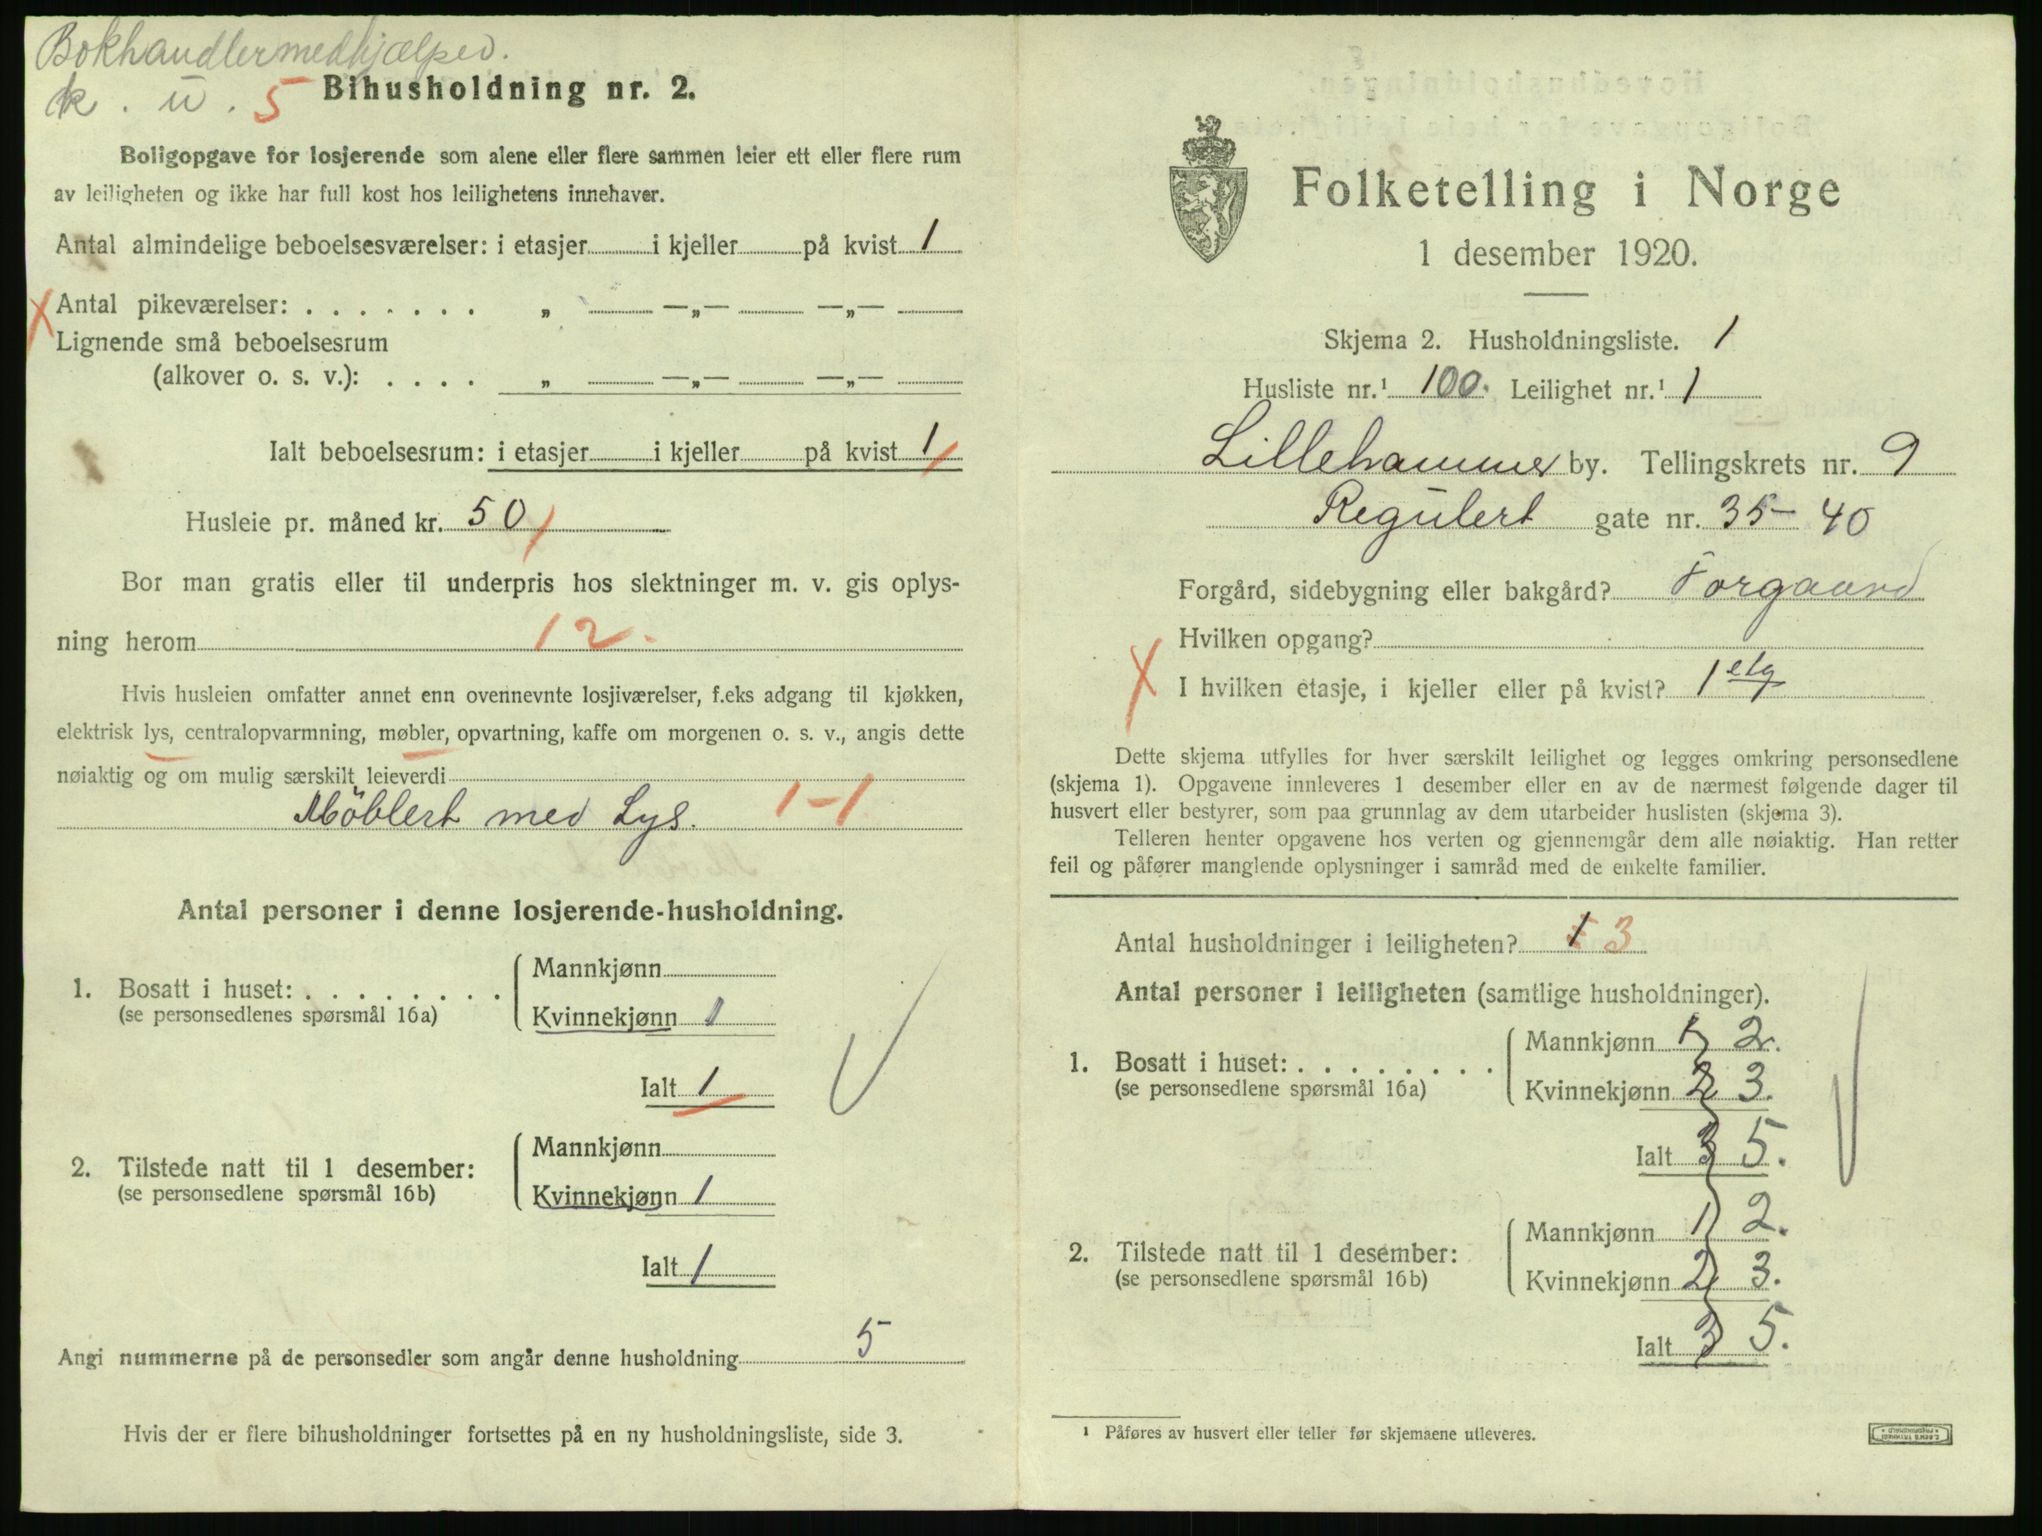 Bokhandlermedhjælper.
k. u. 5
Bihusholdning nr. 2.
Boligopgave for losjerende som alene eller flere sammen leier ett eller flere rum
av leiligheten og ikke har full kost hos leilighetens innehaver.
Antal almindelige beboelsesværelser: i etasjer i kjeller på kvist 1
Antal pikeværelser: . . . . . . . „ —„— —„—
Lignende små beboelsesrum
(alkover o. s. v.): . . . . „ —„— —„—
Ialt beboelsesrum: i etasjer i kjeller på kvist 1
Husleie pr. måned kr. 50
Bor man gratis eller til underpris hos slektninger m. v. gis oplys-
ning herom 12.
Hvis husleien omfatter annet enn ovennevnte losjiværelser, f.eks adgang til kjøkken,
elektrisk lys, centralopvarmning, møbler, opvartning, kaffe om morgenen o. s. v., angis dette
nøiaktig og om mulig særskilt leieverdi
Möblert med Lys. 1-1
Antal personer i denne losjerende-husholdning.
1. Bosatt i huset: . . . . . . . .
(se personsedlenes spørsmål 16a)
Mannkjønn
Kvinnekjønn 1
Ialt 1
2. Tilstede natt til 1 desember:
(se personsedlene spørsmål 16b)
Mannkjønn
Kvinnekjønn 1
Ialt 1
Angi nummerne på de personsedler som angår denne husholdning 5
Hvis der er flere bihusholdninger fortsettes på en ny husholdningsliste, side 3.
Folketelling i Norge
1 desember 1920.
Skjema 2. Husholdningsliste. 1
Husliste nr.¹ 100. Leilighet nr.¹ 1
Lillehammer by. Tellingskrets nr. 9
Regulert gate nr. 35- 40
Forgård, sidebygning eller bakgård? Forgaard
Hvilken opgang?
I hvilken etasje, i kjeller eller på kvist? 1 etg
Dette skjema utfylles for hver særskilt leilighet og legges omkring personsedlene
(skjema 1). Opgavene innleveres 1 desember eller en av de nærmest følgende dager til
husvert eller bestyrer, som paa grunnlag av dem utarbeider huslisten (skjema 3).
Telleren henter opgavene hos verten og gjennemgår dem alle nøiaktig. Han retter
feil og påfører manglende oplysninger i samråd med de enkelte familier.
Antal husholdninger i leiligheten? 1 3
Antal personer i leiligheten (samtlige husholdninger).
1. Bosatt i huset: . . . . . . . .
(se personsedlene spørsmål 16a)
Mannkjønn 1 2.
Kvinnekjønn 2 3.
Ialt 3 5.
2. Tilstede natt til 1 desember:
(se personsedlene spørsmål 16b)
Mannkjønn 1 2.
Kvinnekjønn 2 3.
Ialt 3 5.
¹ Påføres av husvert eller teller før skjemaene utleveres.